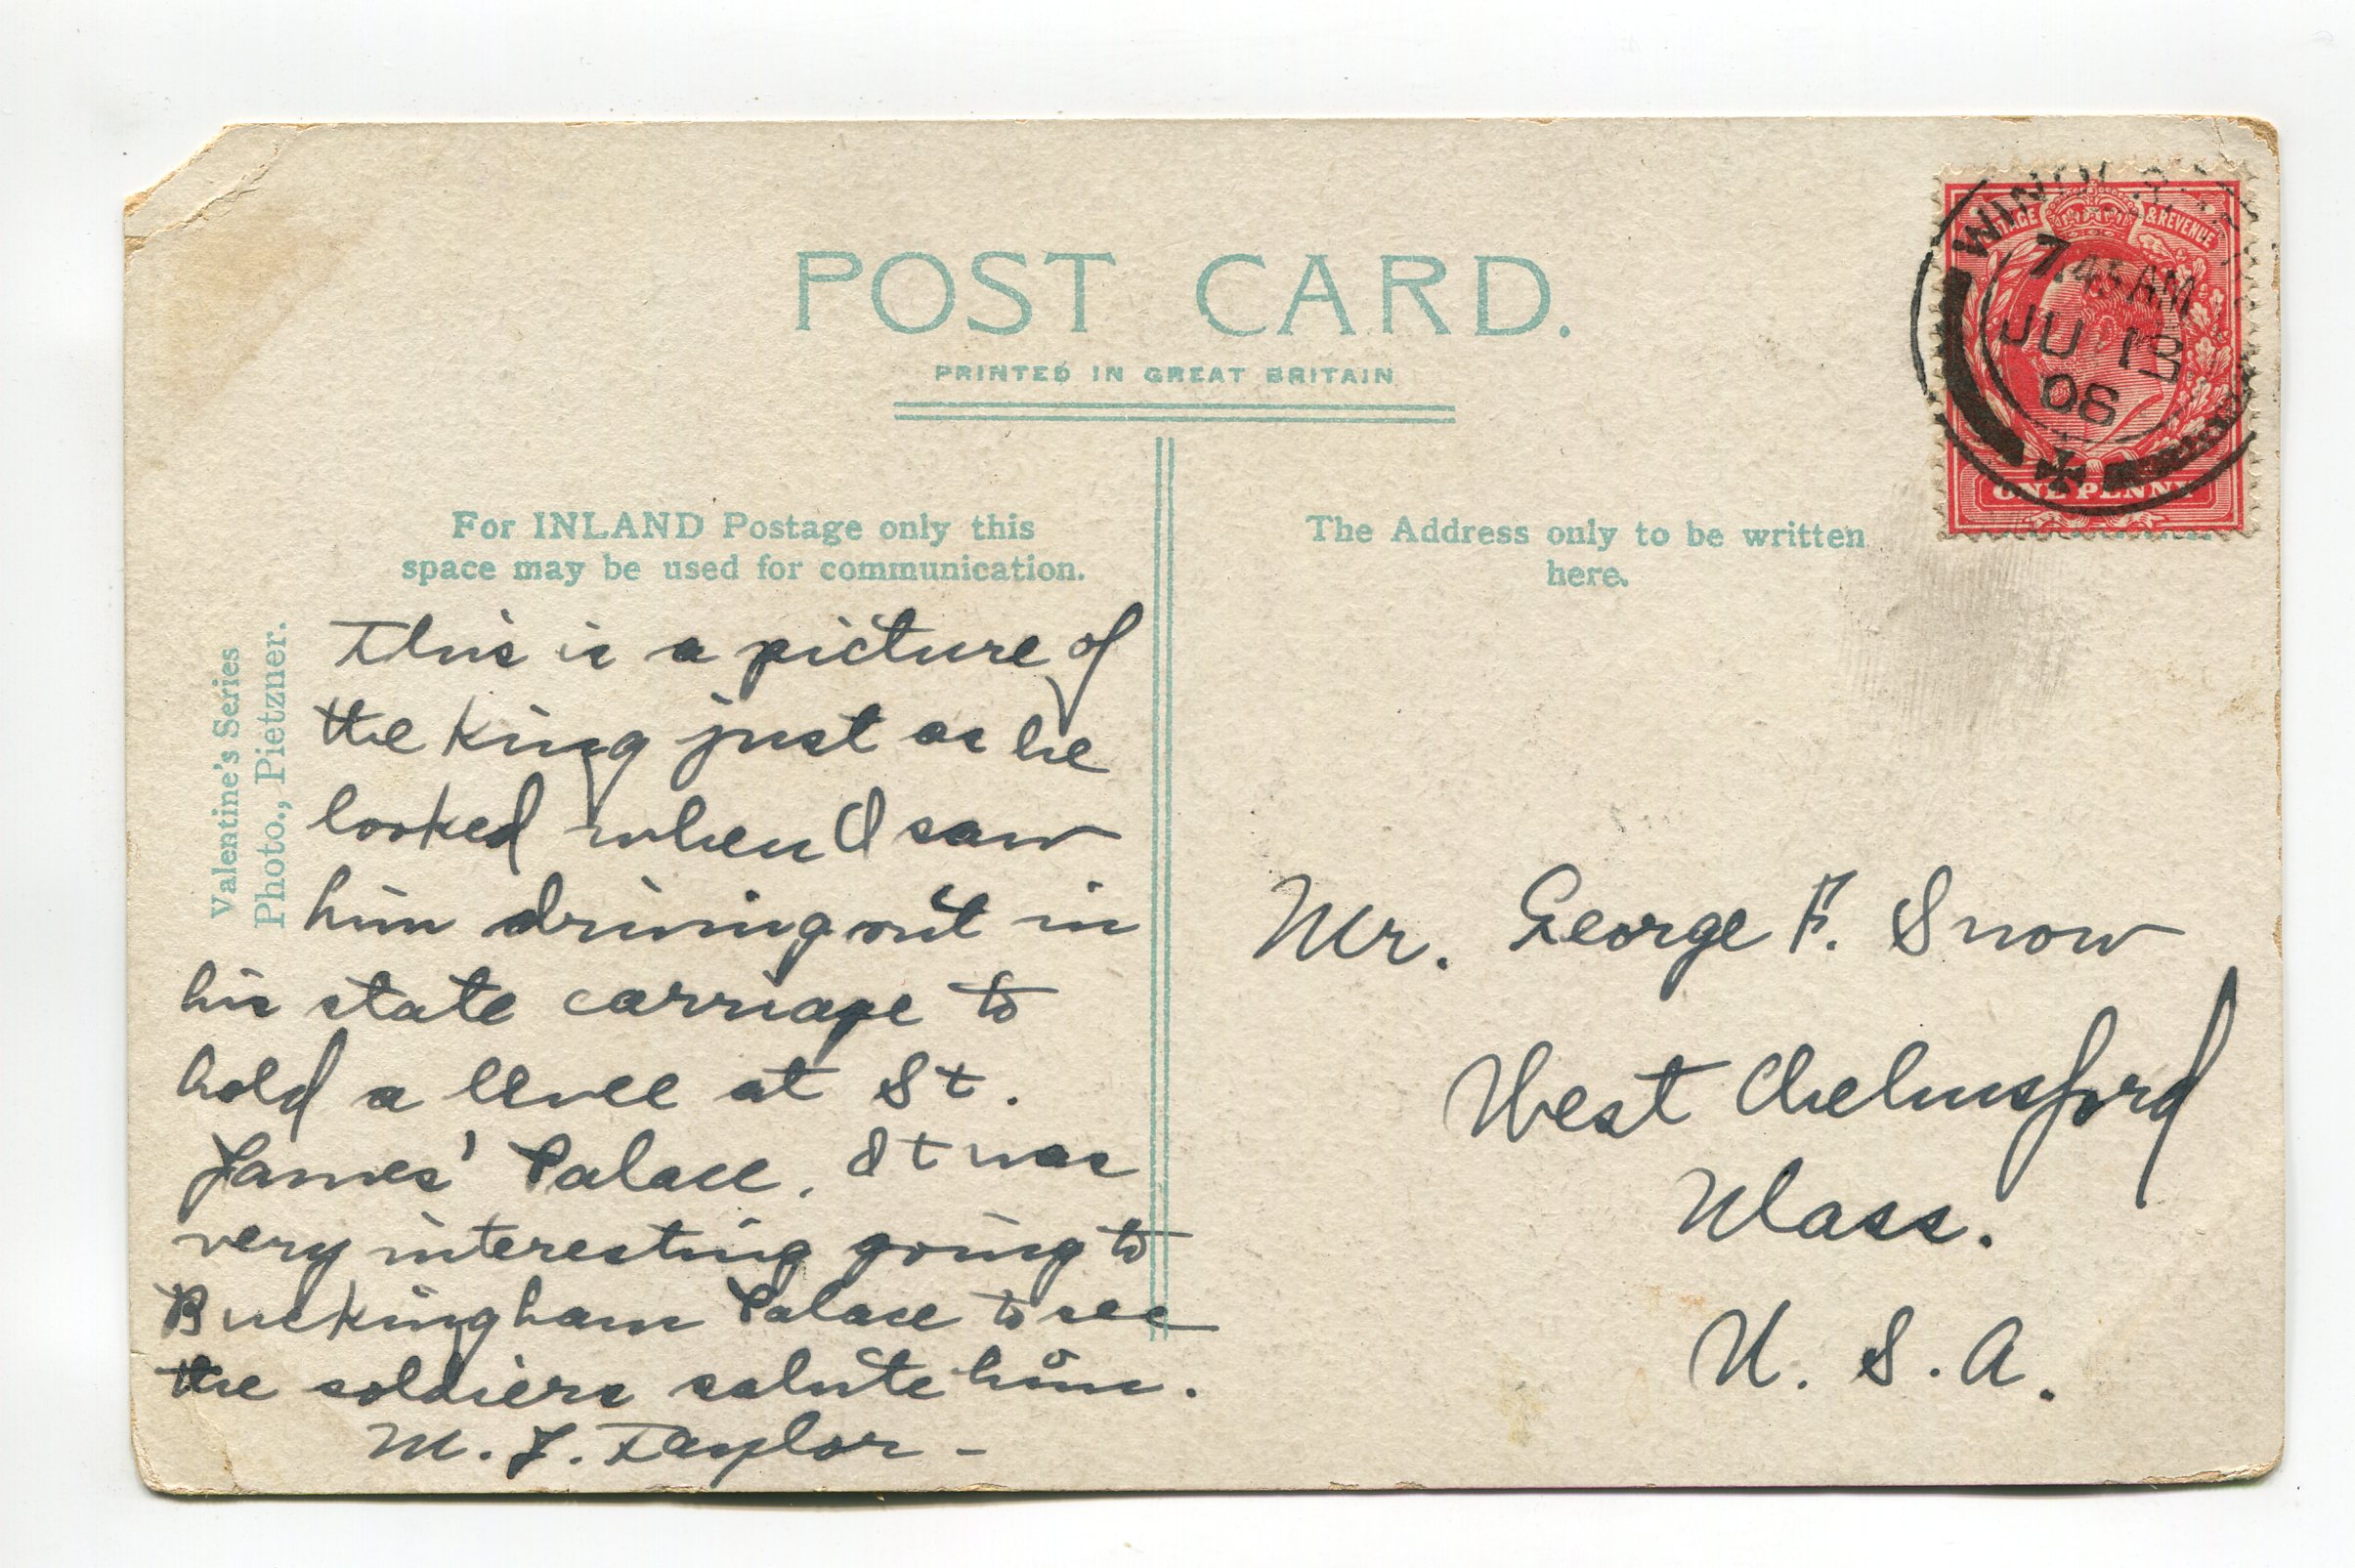 POST CARD.
PRINTED IN GREAT BRITAIN
For INLAND Postage only this
space may be used for communication.
The Address only to be written
here.
Valentine's Series
Photo., Pietzner.
This is a picture of
the King just as he
looked when I saw
him driving out in
his state carriage to
hold a levee at St.
James' Palace. It was
very interesting going to
Buckingham Palace to see
the soldiers salute him.
M. J. Taylor -
Mr. George F. Snow
West Chelmsford
Mass.
U. S. A.
& REVENUE
7.45 AM
JU
08
ONE PENNY